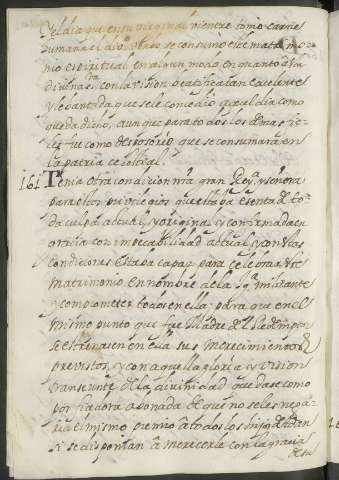 y el dia que en su virginal vientre tomo carne
umana el
se consumo este matrimo
nio espiritual en algun modo en quanto a la
divina con la vision beatifica tan excelente
y levantada que se le concedio aquel dia como
queda dicho, aunque para todos los demas fie
les fue como desposorio que se consumara en
la patria celestial.
161 Tenia otra condicion nra gran Reyª y señora
para estos privilegios que estaba esenta de to
da culpa actual y original y confirmada en
gracia con impecabilidad actual, y con estas
condiciones estaba capaz para celebrar este
matrimonio en nombre de la Igª militante
y comprometer todos en ella: para que en el
mismo punto que fue Madre del Redemptor
se estrenasen en ella sus merecimientos
previstos, y con aquella gloria y vision
transeunte de la divinidad quedase como
por fiadora abonada de que no se les nega
ria el mismo premio a todos los hijos de Adan
si se disponian a merecerle con la gracia
de su